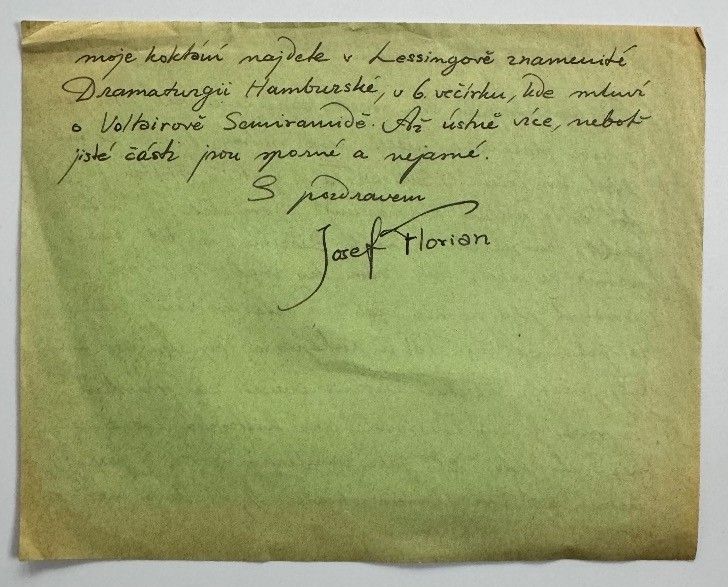 moje koktání najdete v Lessingově znamenité
Dramaturgii Hamburské, v 6. večírku, kde mluví
o Voltairově Semiramidě. Až ústně více, neboť
jisté části jsou sporné a nejasné.
S pozdravem
Josef Florian